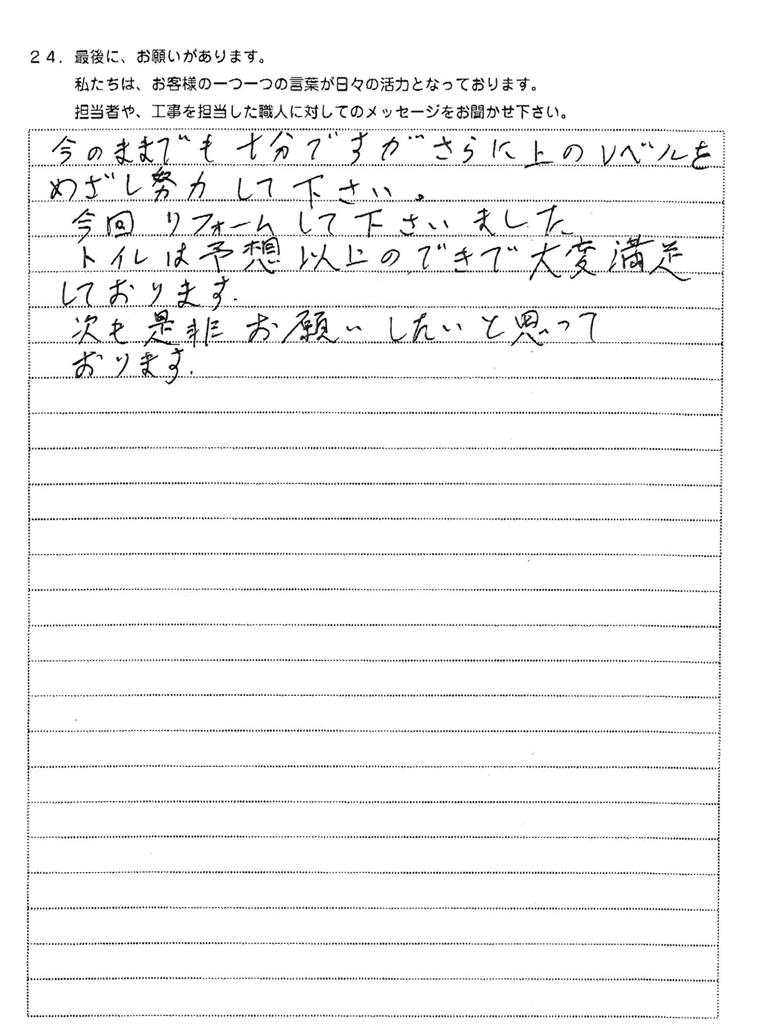 24. 最後に、お願いがあります。
私たちは、お客様の一つ一つの言葉が日々の活力となっております。
担当者や、工事を担当した職人に対してのメッセージをお聞かせ下さい。
今のままでも十分ですがさらに上のレベルを
めざし努力して下さい。
今回リフォームして下さいました
トイレは予想以上のできで大変満足
しております.
次も是非お願いしたいと思って
おります.